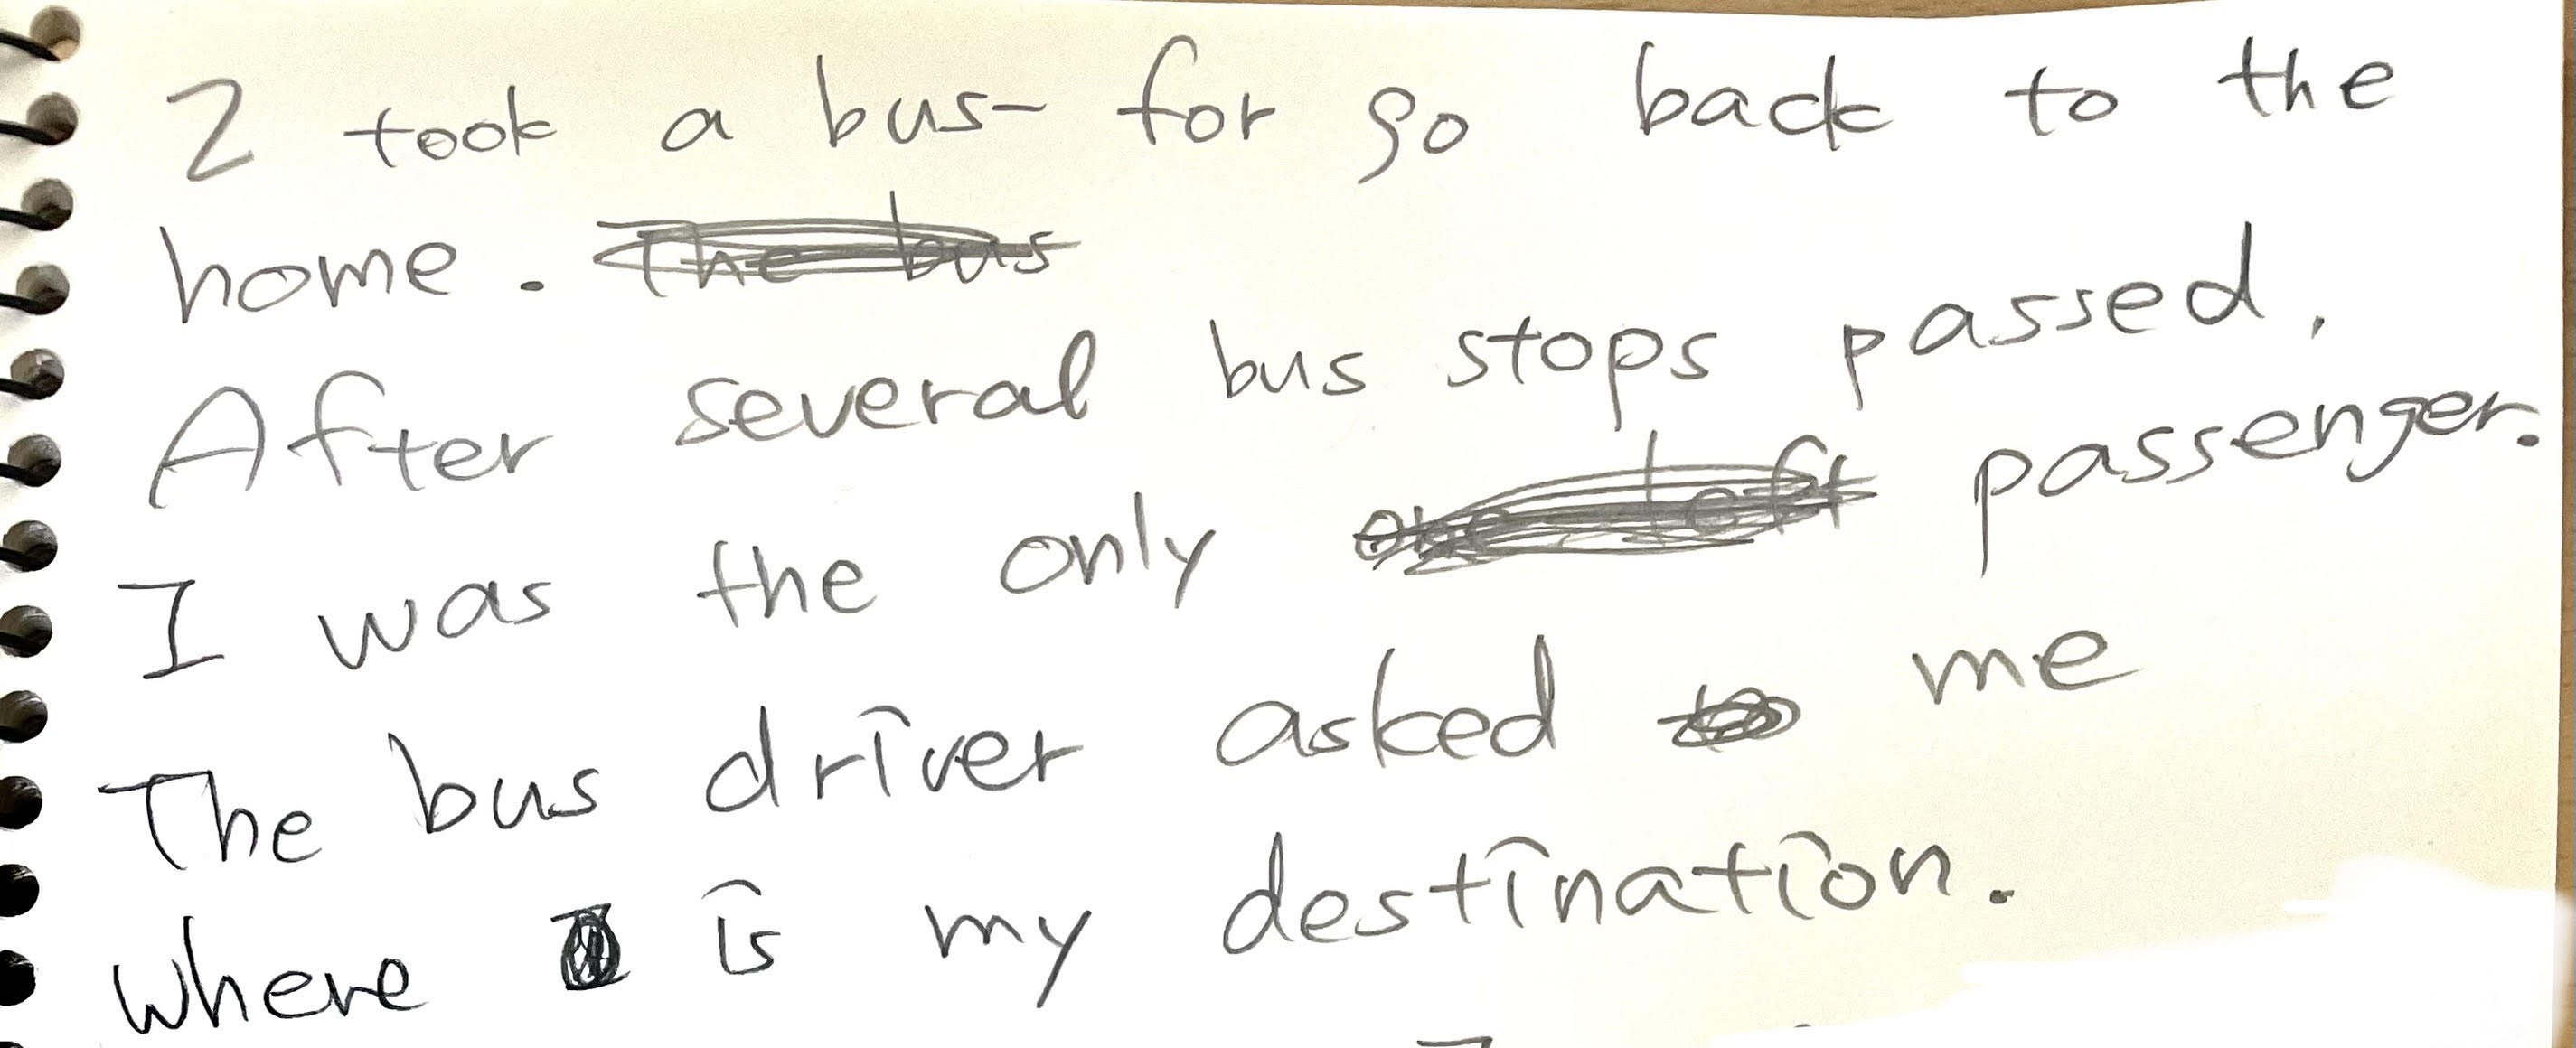 I took a bus for go back to the
home. The bus
After several bus stops passed,
I was the only one left passenger.
The bus driver asked to me
where is my destination.